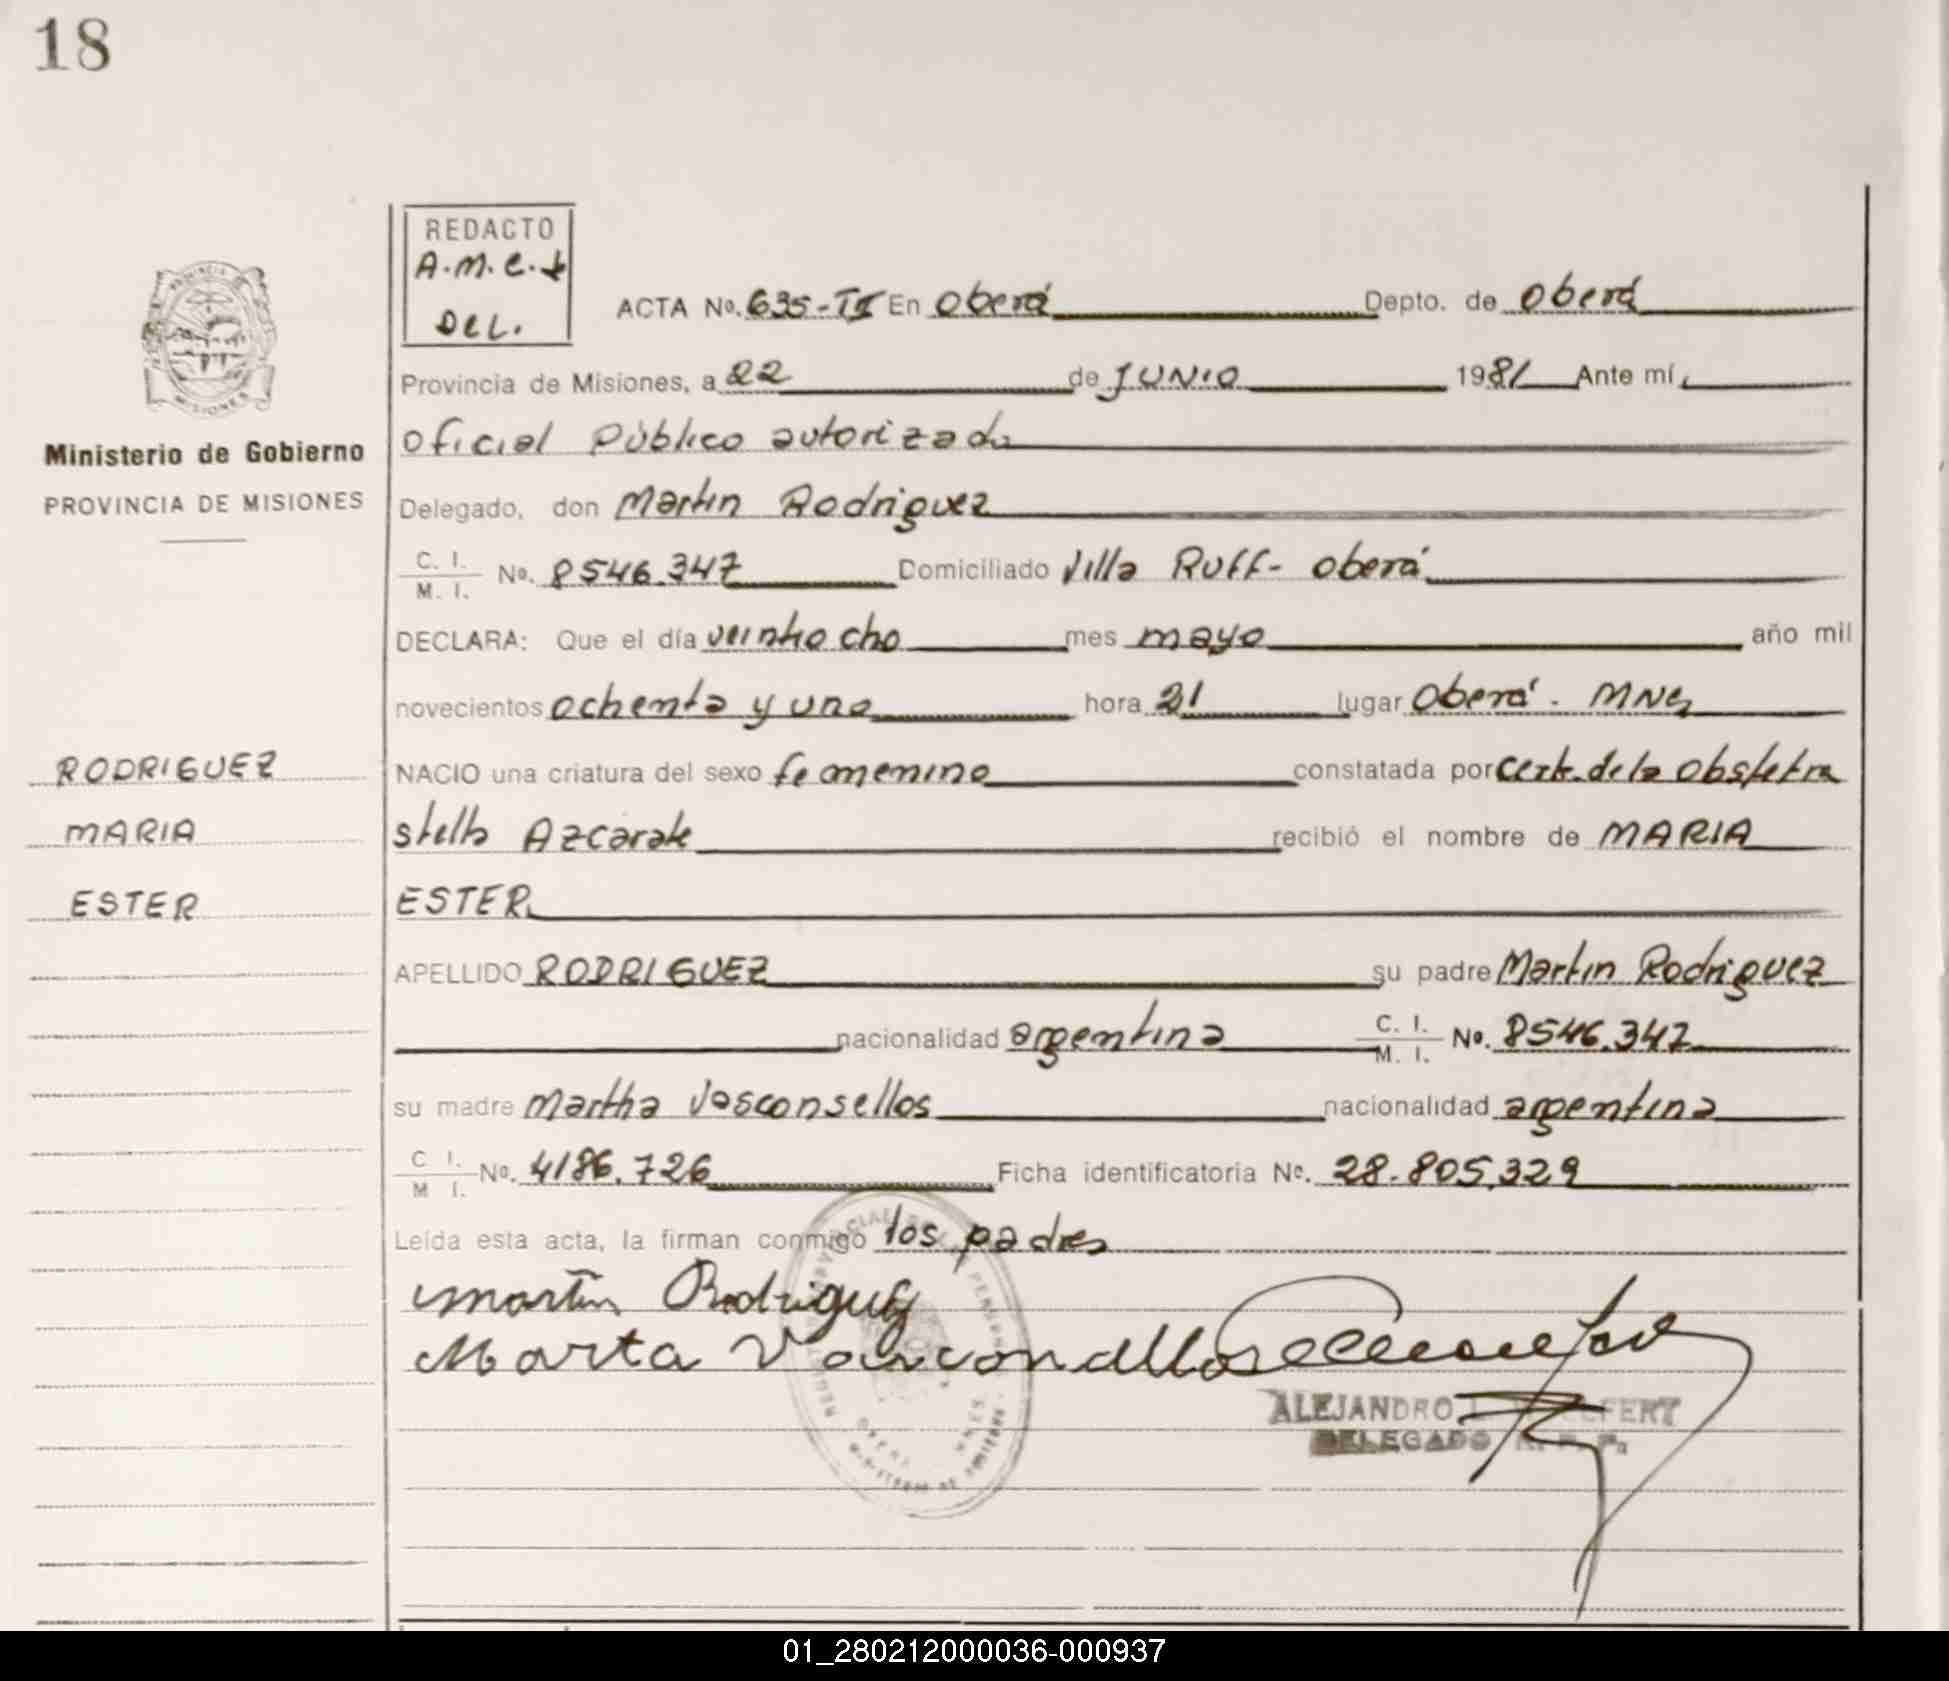 18
REDACTO
A.M.C.
DEL.
ACTA No. 635-TII En Oberá Depto. de Oberá
Provincia de Misiones, a 22 de JUNIO 1981 Ante mí,
Oficial Público autorizado
Delegado, don Martin Rodriguez
C. I.
M. I. No. 8546.347 Domiciliado Villa Ruff- Oberá
DECLARA: Que el día veintiocho mes mayo año mil
novecientos ochenta y uno hora 21 lugar Oberá. MNes
NACIO una criatura del sexo femenino constatada por Cert. de la Obstetra
Stella Azcarate recibió el nombre de MARIA
ESTER
APELLIDO RODRIGUEZ su padre Martin Rodriguez
nacionalidad argentina C. I.
M. I. No. 8546.347
su madre Martha Vasconsellos nacionalidad argentina
C I.
M I. No. 4186.726 Ficha identificatoria No. 28.805.329
Leída esta acta, la firman conmigo los padres
Martin Rodriguez
Marta Vasconsellos
ALEJANDRO
DELEGADO
Ministerio de Gobierno
PROVINCIA DE MISIONES
RODRIGUEZ
MARIA
ESTER
01_280212000036-000937